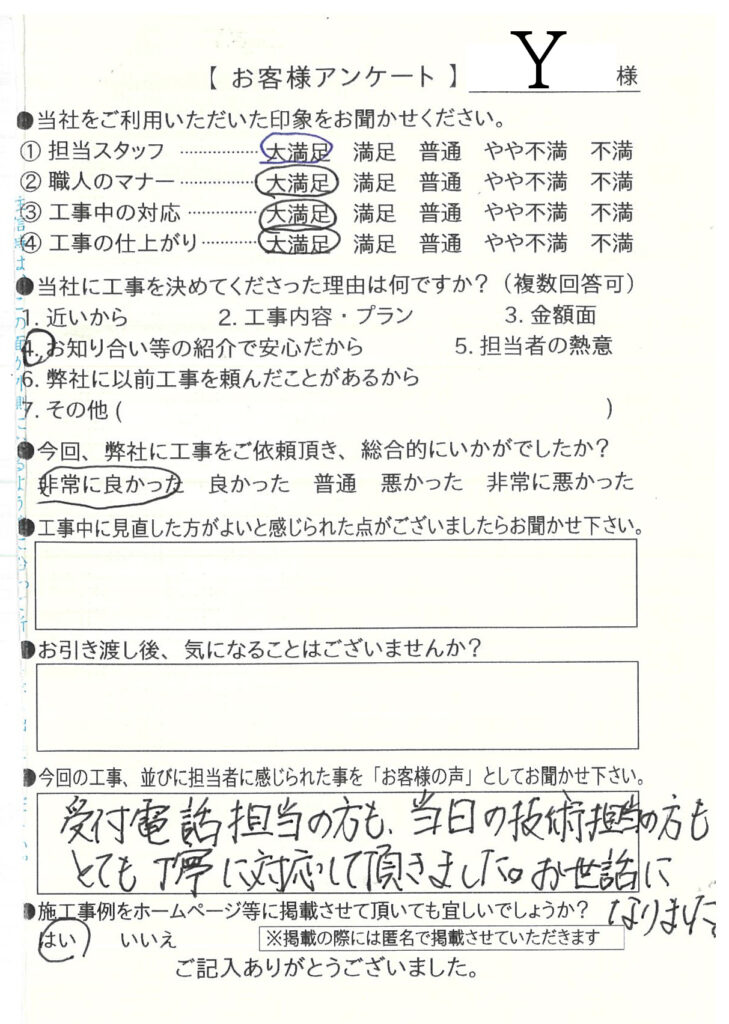 【 お客様アンケート 】 Y 様
●当社をご利用いただいた印象をお聞かせください。
① 担当スタッフ ……………… 大満足 満足 普通 やや不満 不満
② 職人のマナー ……………… 大満足 満足 普通 やや不満 不満
③ 工事中の対応 …………… 大満足 満足 普通 やや不満 不満
④ 工事の仕上がり ………… 大満足 満足 普通 やや不満 不満
●当社に工事を決めてくださった理由は何ですか？（複数回答可）
1. 近いから 2. 工事内容・プラン 3. 金額面
4. お知り合い等の紹介で安心だから 5. 担当者の熱意
6. 弊社に以前工事を頼んだことがあるから
7. その他 ( )
●今回、弊社に工事をご依頼頂き、総合的にいかがでしたか？
非常に良かった 良かった 普通 悪かった 非常に悪かった
●工事中に見直した方がよいと感じられた点がございましたらお聞かせ下さい。
●お引き渡し後、気になることはございませんか？
●今回の工事、並びに担当者に感じられた事を「お客様の声」としてお聞かせ下さい。
受付電話担当の方も、当日の技術担当の方も
とても丁寧に対応して頂きました。お世話に
なりました。
●施工事例をホームページ等に掲載させて頂いても宜しいでしょうか？
はい いいえ ※掲載の際には匿名で掲載させていただきます
ご記入ありがとうございました。